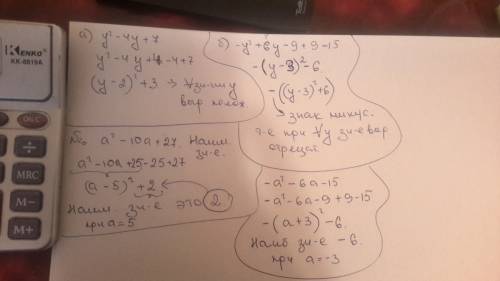 KENKO
KK-8819A
÷
MRC
M−
M+
а) y² - 4y + 7
y² - 4y + 4 - 4 + 7
(y - 2)² + 3 ⇒ ∀ зн-ии y
выр полож.
б) -y² + 6y - 9 + 9 - 15
-(y - 3)² - 6
-((y - 3)² + 6)
знак минус.
т.е при ∀ y зн-е выр
отрецат.
a² - 10a + 27. Наим
зн-е.
a² - 10a + 25 - 25 + 27
(a - 5)² + 2
Наим зн-е это 2
при a = 5
-a² - 6a - 15
-a² - 6a - 9 + 9 - 15
-(a + 3)² - 6.
Наиб зн-е -6.
при a = -3